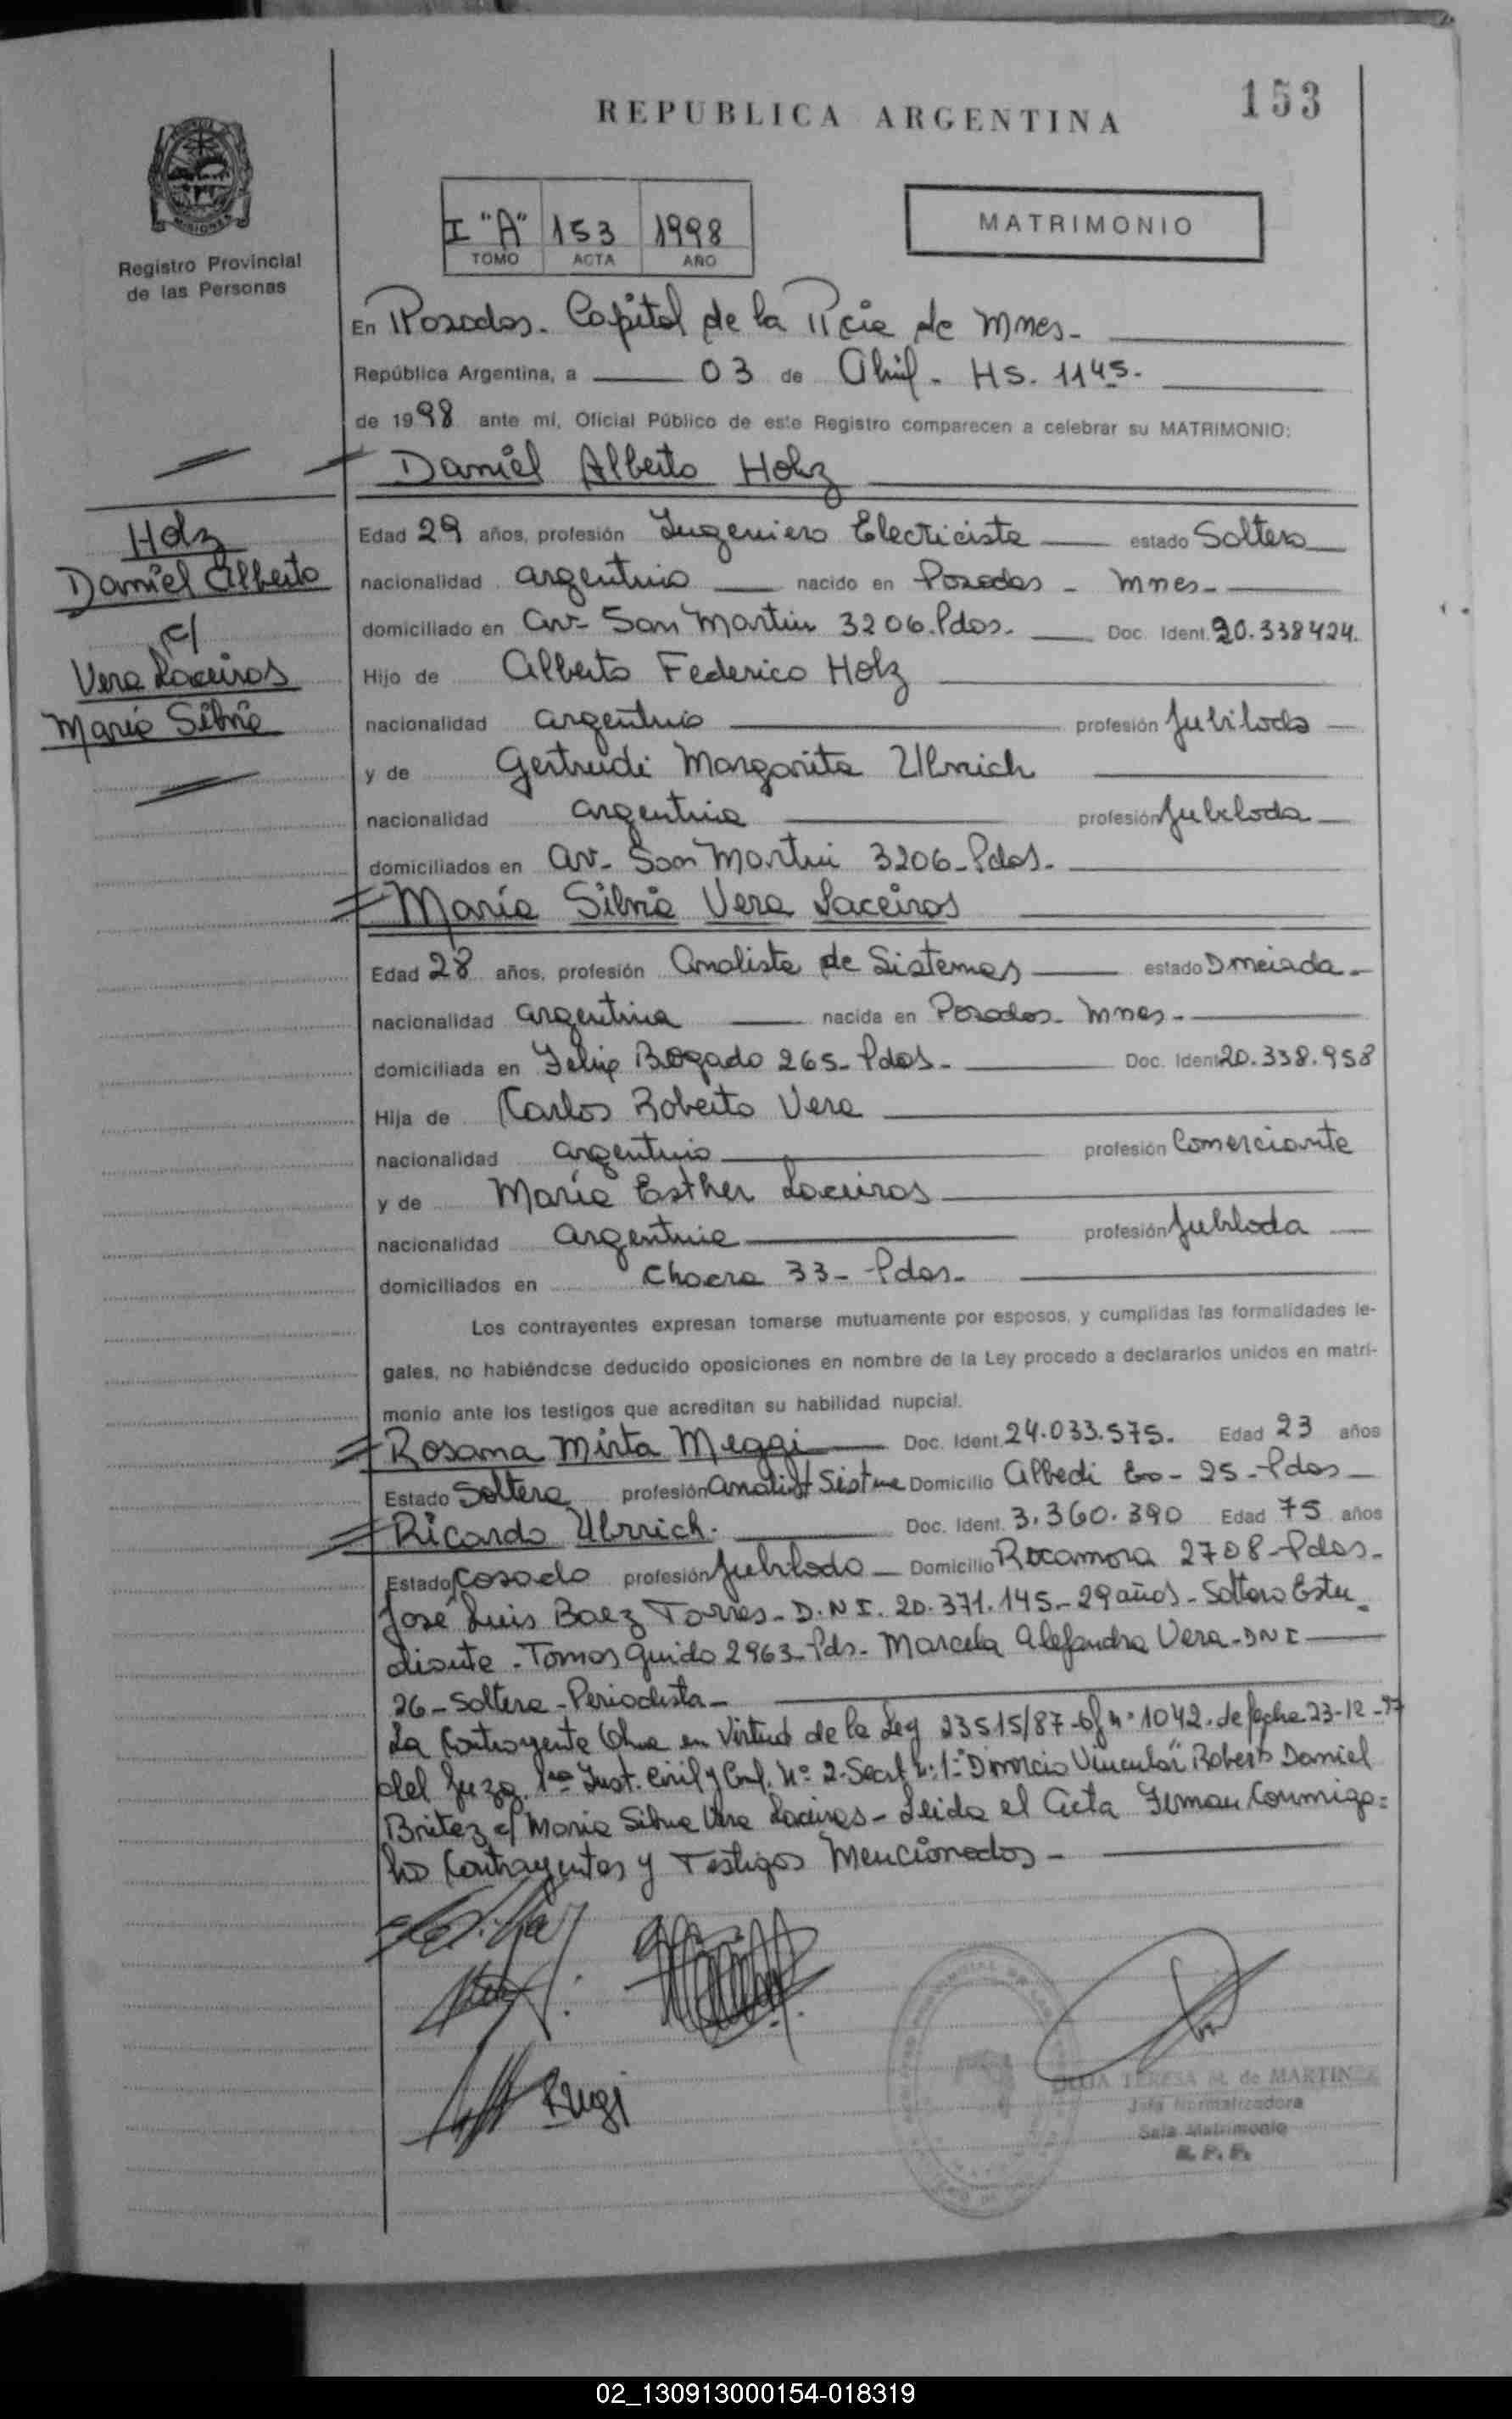 153
REPUBLICA ARGENTINA
MISIONES
Registro Provincial
de las Personas
I "A" 153 1998
TOMO ACTA AÑO
MATRIMONIO
En Posadas. Capital de la Pcia de Mnes-
República Argentina, a 03 de Abril - HS. 1145.
de 1998 ante mí, Oficial Público de este Registro comparecen a celebrar su MATRIMONIO:
Daniel Alberto Holz
Holz
Daniel Alberto
c/
Vera Laceiros
María Silvia
Edad 29 años, profesión Ingeniero Electricista estado Soltero
nacionalidad argentino nacido en Posadas - Mnes-
domiciliado en Av- San Martin 3206. Pdas. Doc. Ident. 20.338424.
Hijo de Alberto Federico Holz
nacionalidad argentino profesión Jubilado
y de Gertrudi Margarita Ulrrich
nacionalidad argentina profesión Jubilada
domiciliados en Av- San Martin 3206-Pdas-
María Silvia Vera Laceiros
Edad 28 años, profesión Analista de Sistemas estado Divorciada-
nacionalidad argentina nacida en Posadas- Mnes-
domiciliada en Felix Bogado 265- Pdas- Doc. Ident 20.338.958
Hija de Carlos Roberto Vera
nacionalidad argentino profesión Comerciante
y de María Esther Laceiros
nacionalidad argentina profesión Jubilada
domiciliados en Chacra 33- Pdas-
Los contrayentes expresan tomarse mutuamente por esposos, y cumplidas las formalidades le-
gales, no habiéndose deducido oposiciones en nombre de la Ley procedo a declararlos unidos en matri-
monio ante los testigos que acreditan su habilidad nupcial.
Rosana Mirta Meggi Doc. Ident. 24.033.575. Edad 23 años
Estado Soltera profesión Domicilio 25-Pdas-
Ricardo Ulrrich. Doc. Ident. 3.360.390 Edad 75 años
Estado Casado profesión Jubilado Domicilio Rocamora 2708-Pdas-
José Luis Baez Torres- D.N.I. 20.371.145-29 años-Soltero Estu
diante-Tomas Guido 2963-Pds- Marcela Alejandra Vera-DNI
26-Soltera-Periodista-
La Contrayente en Virtud de la Ley 23515/87-of nº 1042. de fecha 23-12-97
del Juzg. 1ra Inst. Civil y Nº 2-Secret nº 1-"Divorcio Vincular" Roberto Daniel
Britez c/ Maria Silvia Vera Laceiros-Leida el Acta Firman Conmigo=
los Contrayentes y Testigos Mencionados-
TERESA M. de MARTINEZ
Jefa Normalizadora
Sala Matrimonio
R. P. P.
02_130913000154-018319